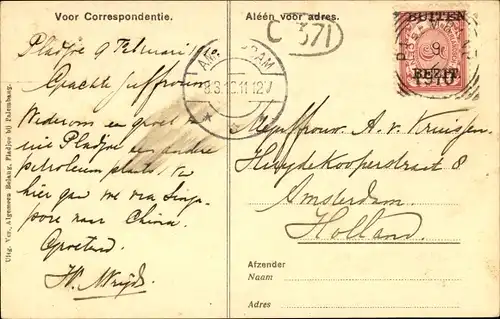 Voor Correspondentie.
Pladjoe 9 Februari 1910.
Geachte Juffrouw
Wederom een groet
uit Pladjoe een andere
petroleum plaats. Van
hier gaan we via Singa-
pore naar China.
Groetend
Uitg. Ver. Algemeen Belang, Pladjoe bij Palembang.
Alléén voor adres.
C 371
AMSTERDAM
8.3.10.11-12V
BUITEN
BEZIT
1910
Mejuffrouw A. v. Kruissen
Huydekooperstraat 8
Amsterdam.
Holland.
Afzender
Naam
Adres